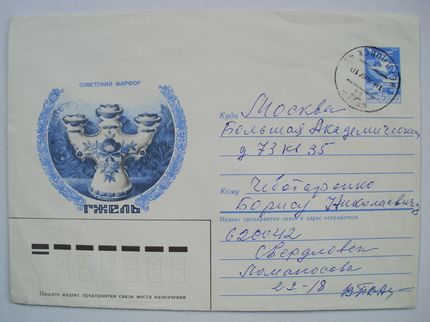 СОВЕТСКИЙ ФАРФОР
ГЖЕЛЬ
Куда Москва
Большая Академическая
д 73 кв 35
Кому Чеботаренко
Борису Николаевичу
Индекс предприятия связи и адрес отправителя
620042
Свердловск
Ломаносова
Пишите индекс предприятия связи места назначения